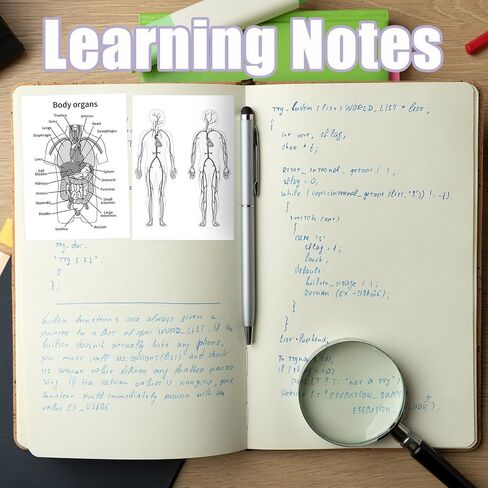 Learning Notes
Body organs
Trachea
Arteries
Veins
Heart
Lungs
Oesophagus
Diaphragm
Liver
Spleen
Gall
Bladder
Stomach
Kidneys
Pancreas
Ureters
Small
intestines
Appendix
Bladder
Large
intestines
Urethra
Rectum
try_doc,
"try [-s]",
0
};
builtin functions are always given a
pointer to a list of type WORD_LIST. If the
builtin doesn't actually take any options,
you must call no_options(list) and check
its return value before any further proces
sing. If the return value is nonzero, your
function should immediately return with the
value EX_USAGE.
try_builtin (list) WORD_LIST * list;
{
int opt, sflag;
char * t;
Reset_internal_getopt ( );
sflag = 0;
while ((opt = internal_getopt (list, "s")) != -1)
{
switch (opt)
{
case 's':
sflag = 1;
break;
default:
builtin_usage ( );
return (EX_USAGE);
}
}
list = loptend;
t = ttyname
if (sflag == 0)
puts (t ? t : "not a tty")
return (t ? EXECUTION_SUCCESS
EXECUTION_FAILURE);
}